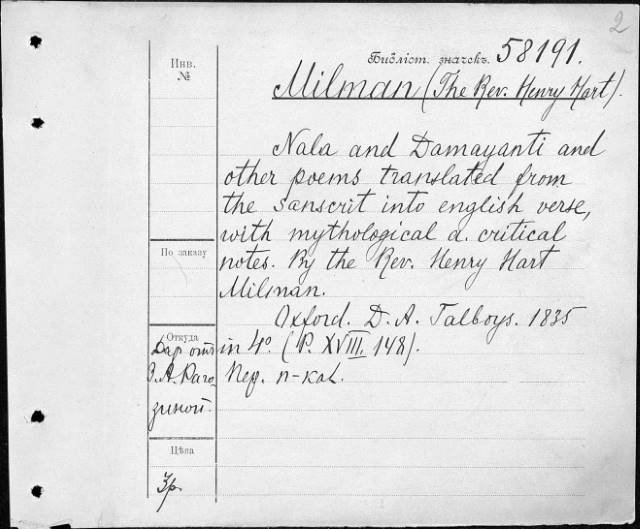 2
Инв.
№
Библіот. значекъ. 58191.
Milman (The Rev. Henry Hart).
Nala and Damayanti and
other poems translated from
the sanscrit into english verse,
with mythological a. critical
notes. By the Rev. Henry Hart
Milman.
Oxford. D. A. Talboys. 1835
in 4°. (P. XVIII. 148).
Пер. п-кал.
По заказу
Откуда
Дар отъ
З. А. Раго
зиной.
Цѣна
3р.